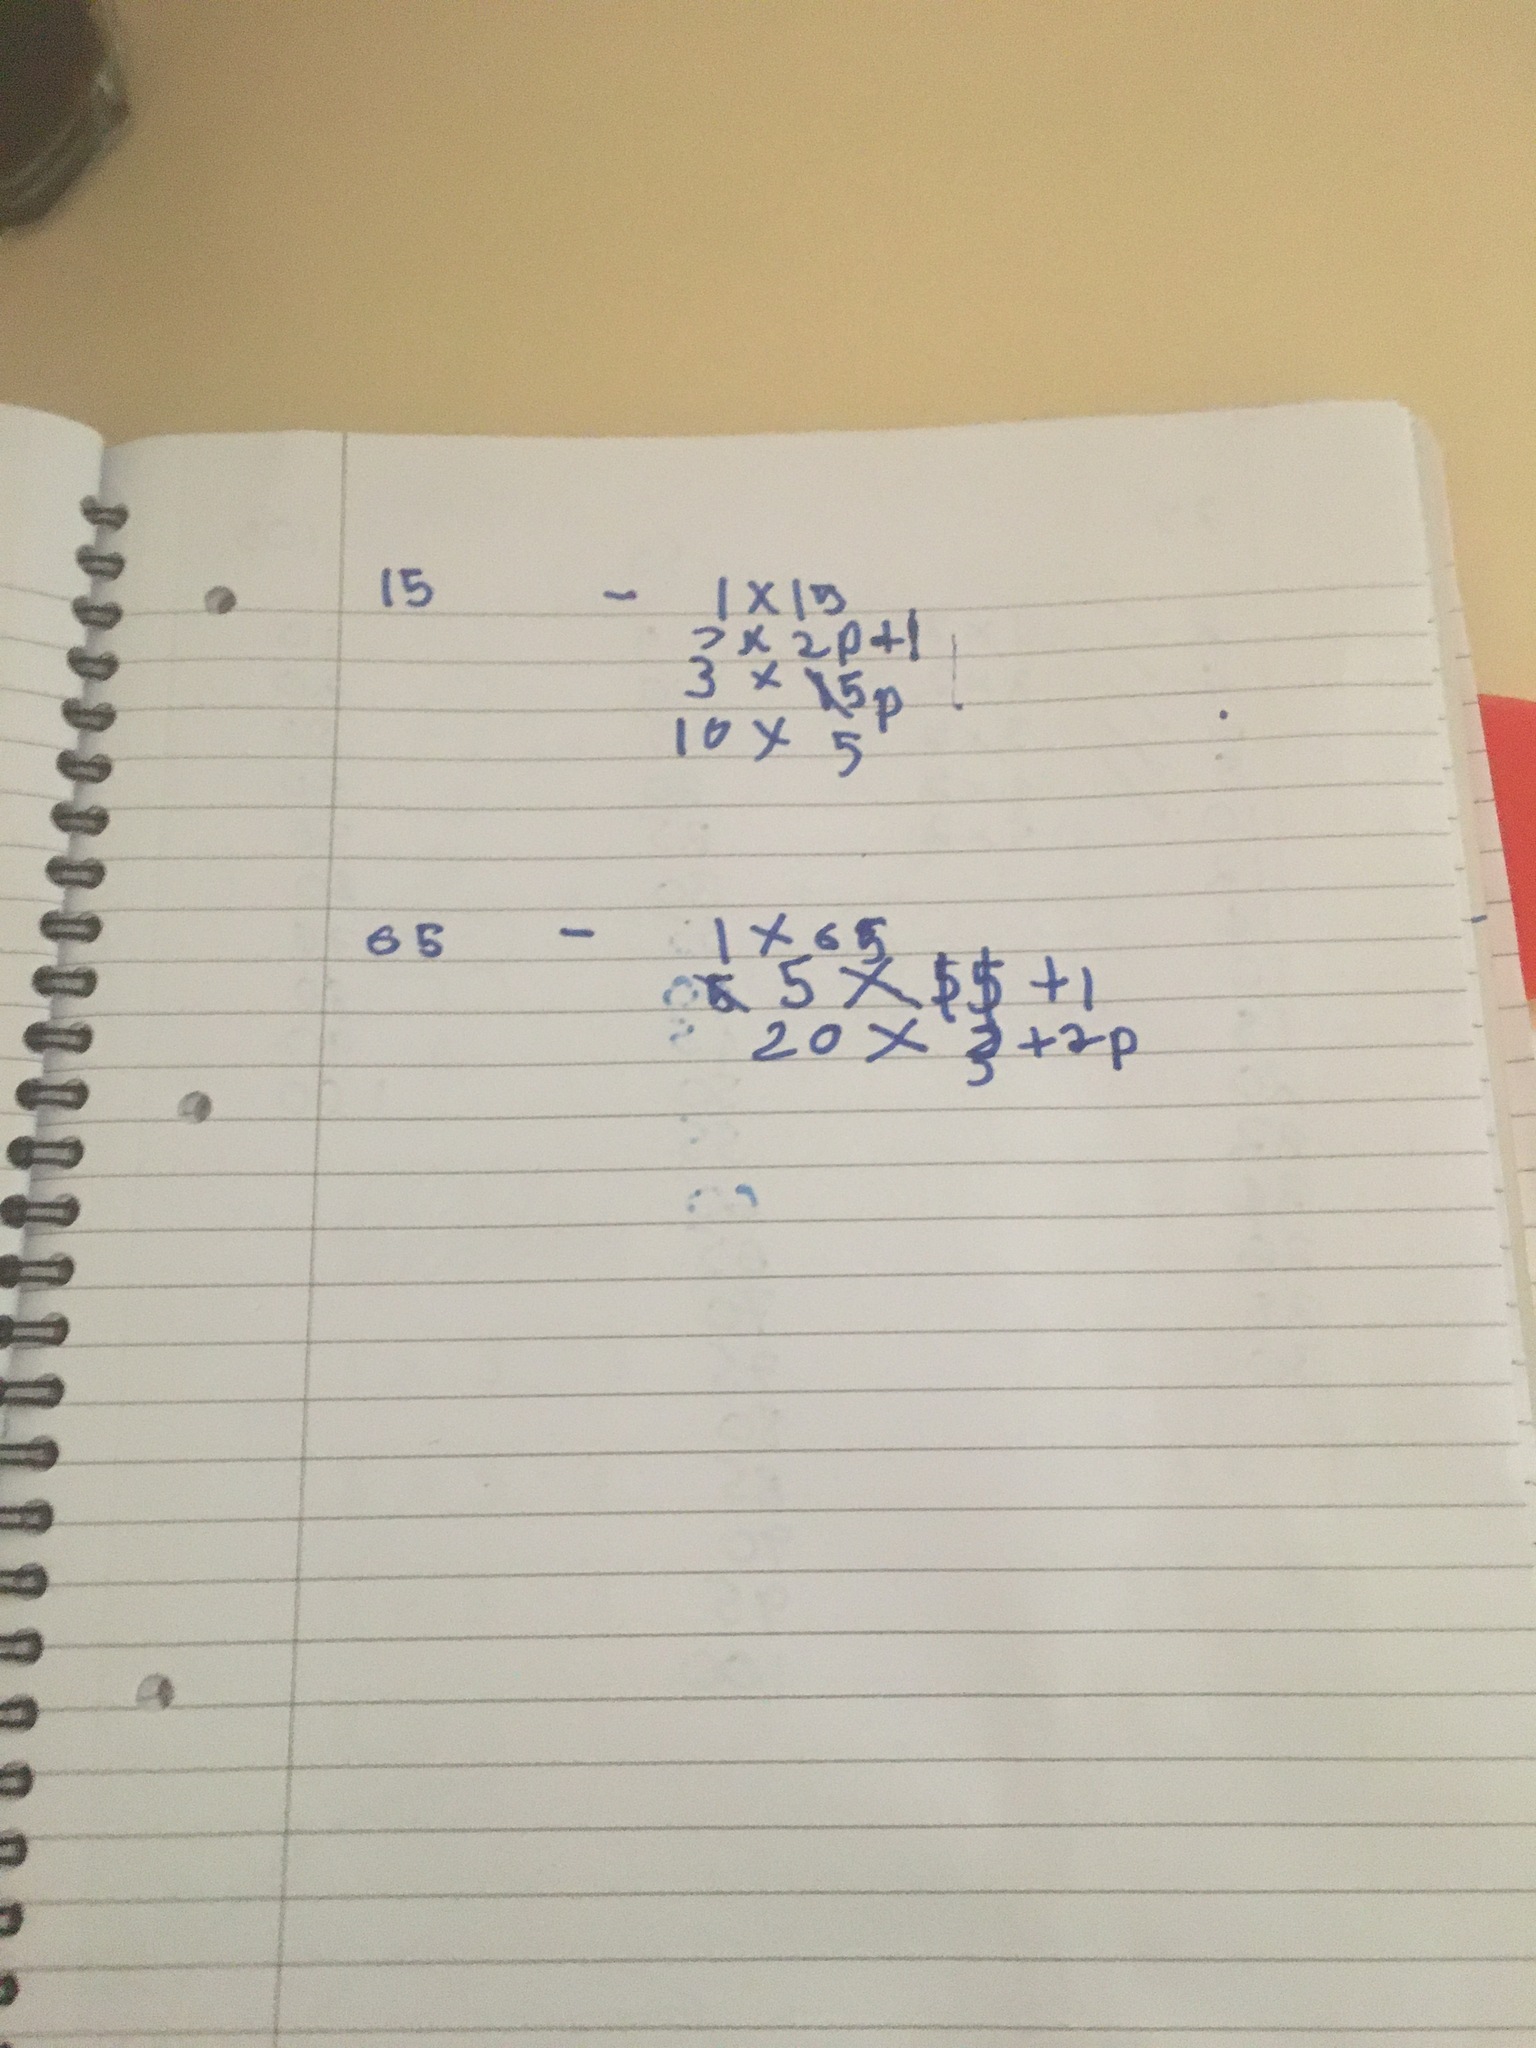 15 - 1 x 15
7 x 2p + 1
3 x 5p
10 x 5
65 - 1 x 65
5 x 55 + 1
20 x 3 + 2p